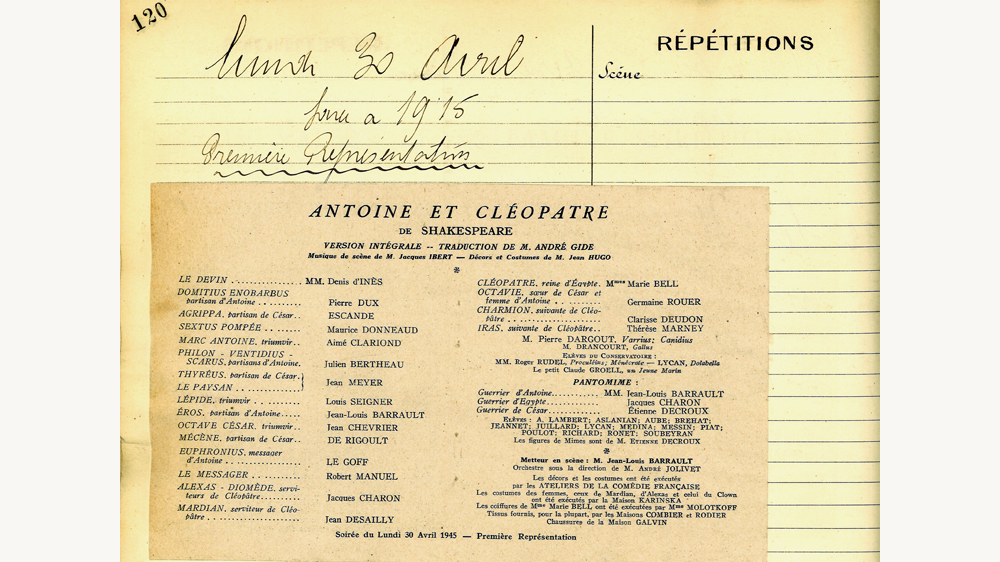 120
lundi 30 Avril
RÉPÉTITIONS
Scène
à 1915
Première Représentation
ANTOINE ET CLÉOPATRE
DE SHAKESPEARE
VERSION INTÉGRALE -- TRADUCTION DE M. ANDRÉ GIDE
Musique de scène de M. Jacques IBERT — Décors et Costumes de M. Jean HUGO
LE DEVIN ................. MM. Denis d'INÈS
DOMITIUS ENOBARBUS
partisan d'Antoine .......... Pierre DUX
AGRIPPA, partisan de César.. ESCANDE
SEXTUS POMPÉE .. ....... Maurice DONNEAUD
MARC ANTOINE, triumvir.. Aimé CLARIOND
PHILON - VENTIDIUS -
SCARUS, partisans d'Antoine. Julien BERTHEAU
THYRÉUS, partisan de César.
LE PAYSAN .. ............. Jean MEYER
LÉPIDE, triumvir .. ........ Louis SEIGNER
ÉROS, partisan d'Antoine..... Jean-Louis BARRAULT
OCTAVE CÉSAR, triumvir.. Jean CHEVRIER
MÉCÈNE, partisan de César.. DE RIGOULT
EUPHRONIUS, messager
d'Antoine .. ............. LE GOFF
LE MESSAGER .. .......... Robert MANUEL
ALEXAS - DIOMÈDE, servi-
teurs de Cléopâtre.......... Jacques CHARON
MARDIAN, serviteur de Cléo-
pâtre .. ................. Jean DESAILLY
CLÉOPATRE, reine d'Égypte. Mmes Marie BELL
OCTAVIE, sœur de César et
femme d'Antoine .. ......... Germaine ROUER
CHARMION, suivante de Cléo-
pâtre .. ................. Clarisse DEUDON
IRAS, suivante de Cléopâtre.. Thérèse MARNEY
M. Pierre DARGOUT, Varrius; Canidius
M. DRANCOURT, Gallus
ELÈVES DU CONSERVATOIRE :
MM. Roger RUDEL, Proculéius; Ménécrate — LYCAN, Dolabella
Le petit Claude GROELL, un Jeune Marin
PANTOMIME :
Guerrier d'Antoine........... MM. Jean-Louis BARRAULT
Guerrier d'Egypte............ Jacques CHARON
Guerrier de César............ Étienne DECROUX
ELÈVES : A. LAMBERT; ASLANIAN; AUBE; BREHAT;
JEANNET; JUILLARD; LYCAN; MEDINA; MESSIN; PIAT;
POULOT; RICHARD; RONET; SOUBEYRAN
Les figures de Mimes sont de M. ETIENNE DECROUX
Metteur en scène : M. Jean-Louis BARRAULT
Orchestre sous la direction de M. ANDRÉ JOLIVET
Les décors et les costumes ont été exécutés
par les ATELIERS DE LA COMÉDIE FRANÇAISE
Les costumes des femmes, ceux de Mardian, d'Alexas et celui du Clown
ont été exécutés par la Maison KARINSKA
Les coiffures de Mme Marie BELL ont été exécutées par Mme MOLOTKOFF
Tissus fournis, pour la plupart, par les Maisons COMBIER et RODIER
Chaussures de la Maison GALVIN
Soirée du Lundi 30 Avril 1945 — Première Représentation